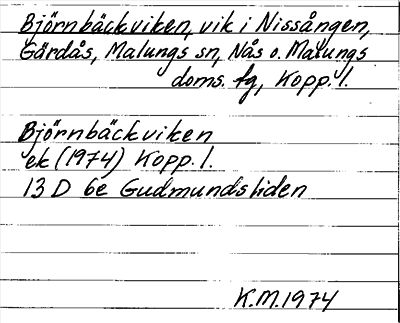 Björnbäckviken, vik i Nissången,
Gärdås, Malungs sn, Nås o. Malungs
doms. fg, Kopp. l.
Björnbäckviken
ek (1974) Kopp. l.
13 D 6e Gudmundsliden
K.M. 1974